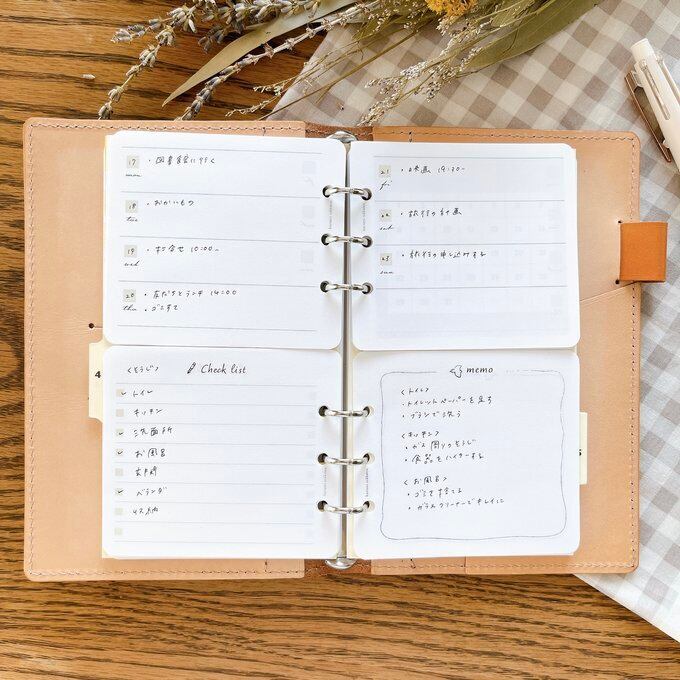 17 ・図書館に行く
mon
18 ・おかいもの
tue
19 ・打合せ 10:00〜
wed
20 ・友だちとランチ 14:00
thu ・ゴミすて
21 ・映画 19:30〜
fri
22 ・旅行の計画
sat
23 ・旅行の申し込みする
sun
4
<そうじ> Check list
トイレ
キッチン
洗面所
お風呂
玄関
ベランダ
memo
<トイレ>
・トイレットペーパーを足す
・ブラシで洗う
<キッチン>
・ガス周りのそうじ
・食器をハイターする
<お風呂>
・ゴミを捨てる
・ガラスクリーナーでキレイに